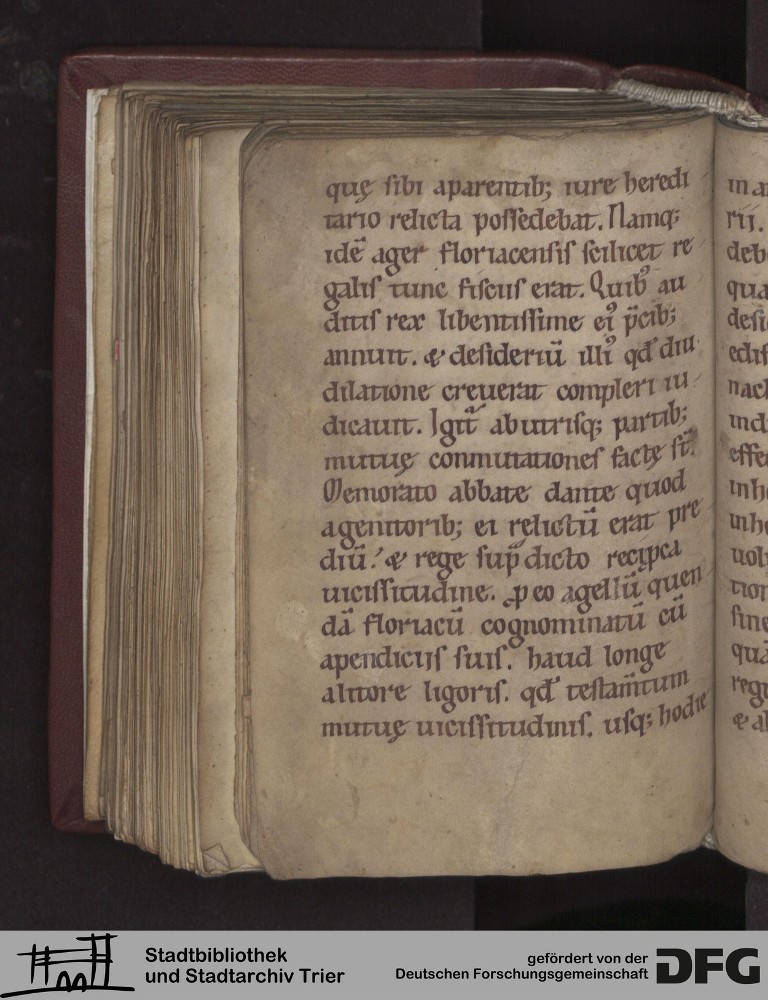 quę sibi aparentib; iure heredi
tario relicta possedebat. Namq;
idē ager floriacensis scilicet re
galis tunc fiscus erat. Quib᾿ au
ditis rex libentissime ei᾿ p̄cib;
annuit. & desideriū illi᾿ qd̄ diu
dilatione creuerat compleri iu
dicauit. Igit̄ abutrisq; partib;
mutuę conmutationes factę st̄.
Memorato abbate dante quod
agenitorib; ei relictū erat pre
diū. & rege sup̄dicto recipca
uicissitudine. ꝓ eo agellū quen
dā floriacū cognominatū cū
apendiciis suis. haud longe
alitore ligoris. qd̄ testam̄tum
mutuę uicissitudinis. usq; hodie
in a
rii.
deb
qua
desi
edif
nach
ind
effe
inh
inh
uol
tion
sine
quā
reg
& a
Stadtbibliothek
und Stadtarchiv Trier
gefördert von der
Deutschen Forschungsgemeinschaft
DFG